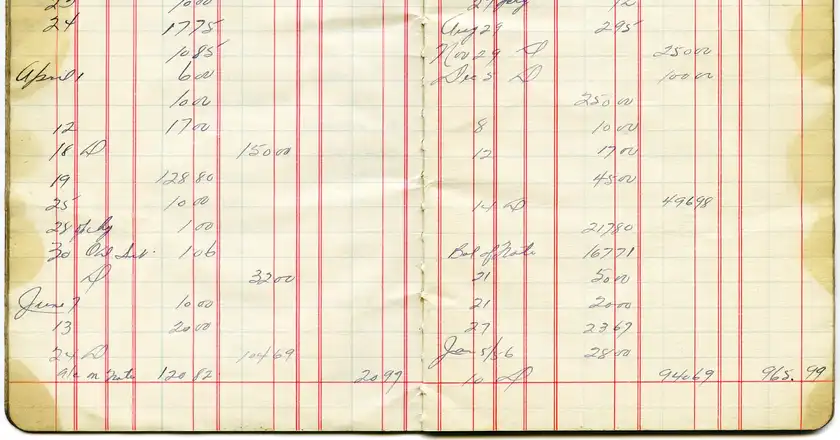 24 1775
1085
April 1 600
1000
12 1700
18 D 15000
19 12880
25 1000
28 100
30 Int. 106
D 3200
June 7 1000
13 2000
24 D 10469
a/c on Note 12082 2097
Aug 29 295
Nov 29 D 25000
Dec 5 D 10000
25000
8 1000
12 1700
4500
14 D 49698
21780
Bal of Note 16771
21 5000
21 2000
27 2367
Jan 5/56 2800
10 D 94069 965.99